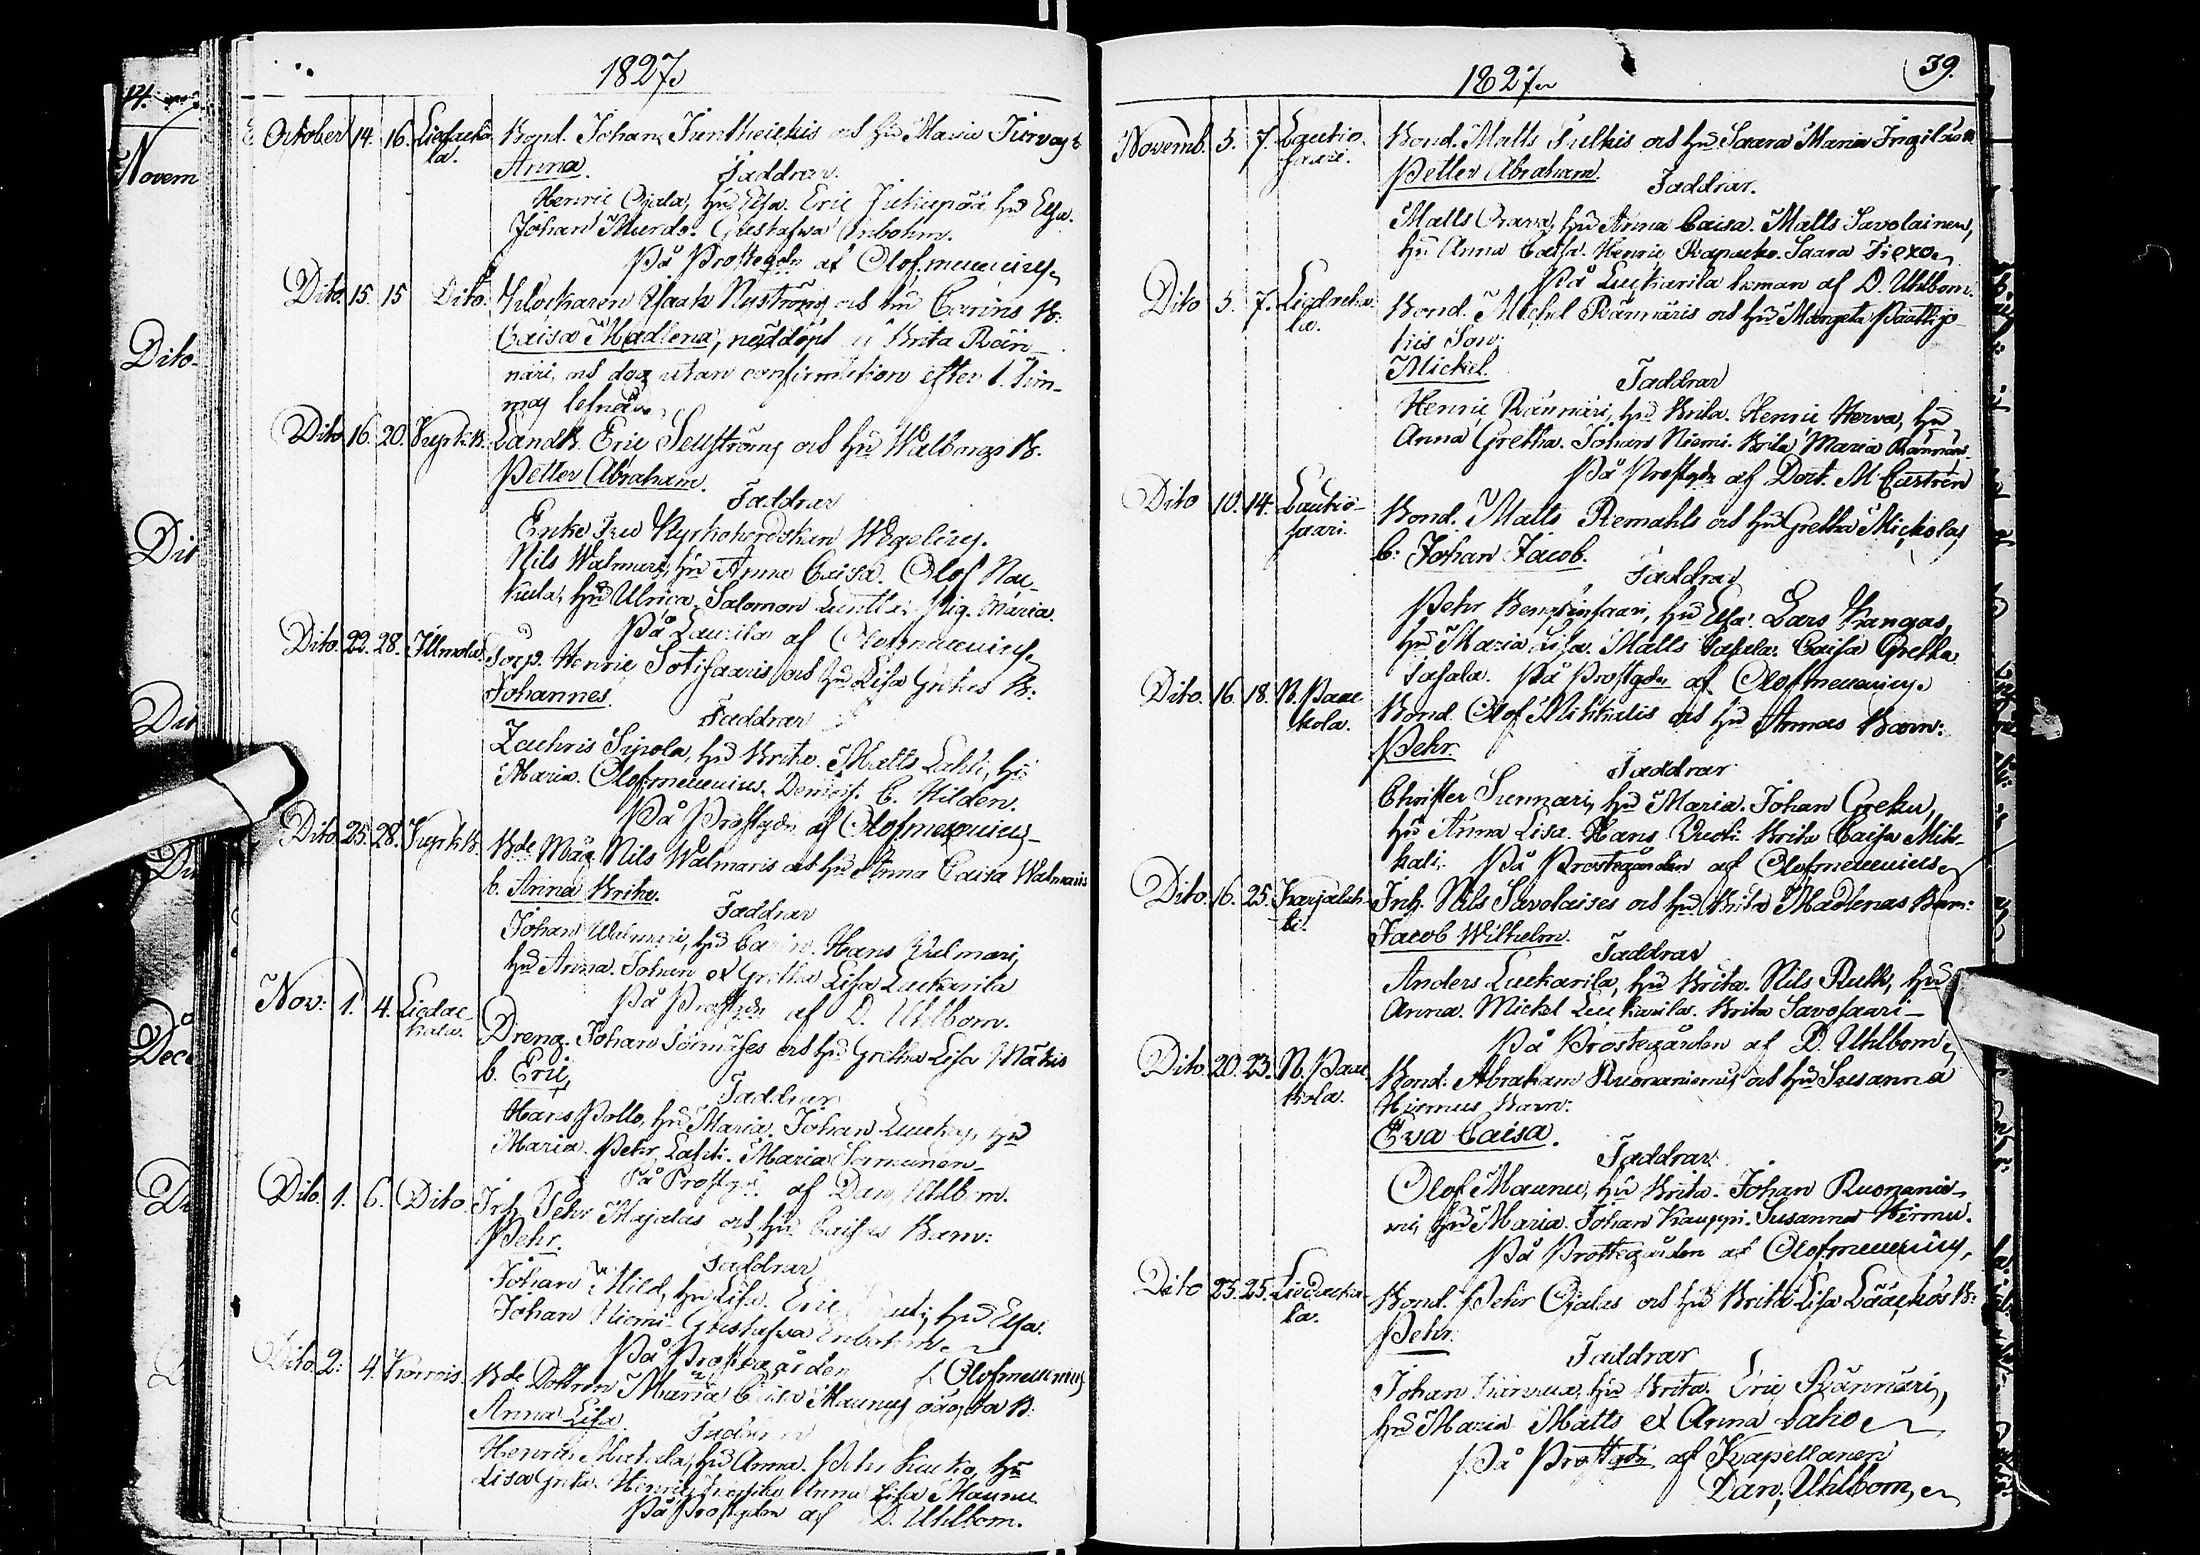 1827
October 14. 16. Liedacka
la.
Bond. Johan Juntheikis och hu Maria
Anna.
Faddrar.
Henric Ojala, hu Lisa. Eric hu Elsa.
Johan Murdo. Gustafwa Enbohm.
På Prostegdn af Olof Mennius
Dito. 15. 15 Dito.
Klockaren Isaak Nyström och hu Carins B:
Caisa Madlena, nöddöpt af Brita Rän-
näri, och dog utan confirmation efter 1. Tim-
mas lefnad.
Dito 16. 20. Kyrk.B.
Landb. Eric Sellström och hu Walborgs B.
Petter Abraham.
Faddrar
Enke Fru Kyrkoherdskan Wegelius.
Nils Walmari, hu Anna Caisa. Olof Nau-
kula, hu Ulrica. Salomon Pig. Maria.
På Laurila af Olof Mennius
Dito. 22. 28. Ilmola.
Torp. Henric Sotisaaris och hu Lisa Gretas B:
Johannes.
Faddrar
Zachris Sipola, hu Brita. Matts Lahti, hu
Maria. Olof Mennius. Demois. C. Hilden.
På Prostgdn af Olof Mennius
Dito. 25. 28. Kyrk.B.
Bde Måg Nils Walmaris och hu Anna Caisa Walmaris
b. Anna Brita.
Faddrar
Johan Walmari, hu Carin. Hans Walmari,
hu Anna. Johan et Gretha Lisa Luckarila
På Prostgdn af D. Uhlbom.
Nov: 1. 4. Liedac-
kala.
Dreng. Johan och hu Gretha Lisa Mäkis
b. Eric,
Faddrar
Hans Pollo, hu Maria. Johan hu
Maria. Pehr Lahti. Maria Somunen
På Prostgd af Dan. Uhlbom.
Dito. 1. 6. Dito.
Inh. Pehr Majalas och hu Caisas Barn:
Pehr.
Faddrar
Johan Mild, hu Lisa. Eric hu Elsa.
Johan Niemi. Gustafwa Enbohm.
På Prostegården af Olof Mennius
Dito 2. 4.
Bde Dottren Maria Caisa Maunus oägta B:
Anna Lisa
Faddrar
Henric hu Anna. Pehr hu
Lisa Greta. Henric Anna Lisa Maunu
På Prostgdn af D. Uhlbom.
1827
39.
Novemb. 5. 7. Lautio-
saari.
Bond. Matts Pulkis och hu Saara Maria Ingilas
Petter Abraham.
Faddrar.
Matts Orava, hu Anna Caisa. Matts Savolainen,
hu Anna Caisa. Henric Saara
På Luckarila af D. Uhlbom.
Dito 5. 7. Liedacka-
la.
Bond. Michel Rännäris och hu Margeta
kis Son.
Mickel.
Faddrar
Henric Rännäri, hu Brita. Henric Herva, hu
Anna Gretha. Johan Niemi. Brita Maria Rännäri.
På Prostgdn af Doct. M Castrén
Dito 10. 14. Lautio-
saari.
Bond. Matts Remahls och hu Gretha Mickolas
b: Johan Jacob.
Faddrar
Pehr hu Elsa. Lars Kangas,
hu Maria Lisa. Matts Caisa Gretha
På Prostgdn af Olof Mennius
Dito. 16. 18. N. Paac
kola.
Bond. Olof Mikkalis och hu Annas Barn:
Pehr.
Faddrar
Christer Sunnari, hu Maria. Johan Greku,
hu Anna Lisa. Hans Brita Caisa Mik-
kali. På Prostegården af Olof Mennius
Dito. 16. 25. Karjalah-
ti.
Inh. Nils Savolaises och hu Brita Madlenas Barn:
Jacob Wilhelm.
Faddrar
Anders Luckarila, hu Brita. Nils hu
Anna. Mickel Luckarila. Brita Savosaari
På Prostegården af D. Uhlbom
Dito. 20. 23. N. Paac
kola.
Bond. Abraham Ruonaniemis och hu Susanna
Hirmus Barn:
Eva Caisa.
Faddrar.
Olof Maunu, hu Brita. Johan Ruonanie-
mi, hu Maria. Johan Kauppi. Susanna Hirmu.
På Prostegården af Olof Mennius
Dito 23. 25. Liedacka
la.
Bond. Pehr Ojalas och hu Brita Lisa Lääckös B:
Pehr.
Faddrar
Johan hu Brita. Eric Rännäri,
hu Maria. Matts et Anna Laho
På Prostgdn af Kapellanen
Dan. Uhlbom,
14.
Novem
Dito
Dit
Dece